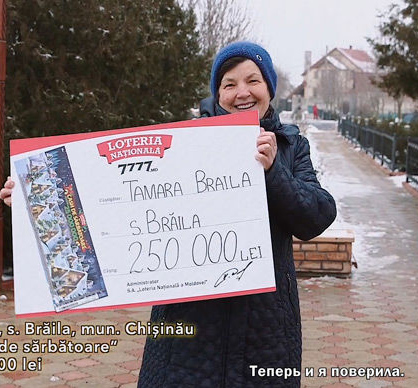 LOTERIA
NAȚIONALĂ
7777.MD
Câștigător: TAMARA BRAILA
Din: S. BRĂILA
Câștig: 250 000 LEI
Administrator
S.A. „Loteria Națională a Moldovei”
, s. Brăila, mun. Chișinău
de sărbătoare”
00 lei
Теперь и я поверила.